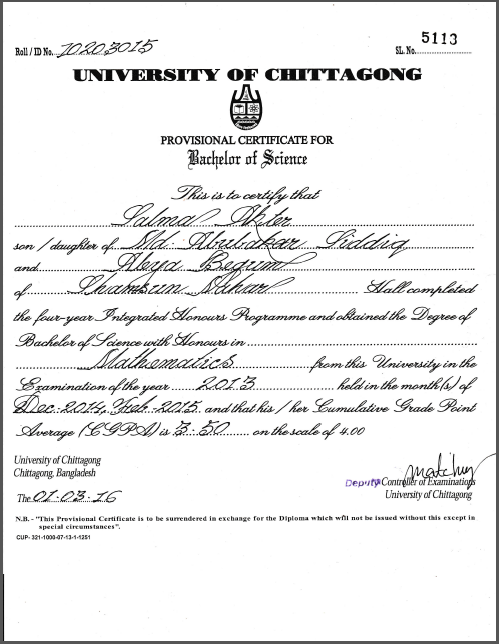 Roll / ID No. 10203015
SL. No. 5113
UNIVERSITY OF CHITTAGONG
PROVISIONAL CERTIFICATE FOR
Bachelor of Science
This is to certify that
Salma Akter
son / daughter of Md. Abubakar Siddiq
and Aleya Begum
of Shamsun Nahar Hall completed
the four-year Integrated Honours Programme and obtained the Degree of
Bachelor of Science with Honours in
Mathematics from this University in the
Examination of the year 2013 held in the month(s) of
Dec-2014, Feb-2015 and that his / her Cumulative Grade Point
Average (CGPA) is 3.50 on the scale of 4.00
University of Chittagong
Chittagong, Bangladesh
Deputy Controller of Examinations
The 01-03-16
University of Chittagong
N.B. - "This Provisional Certificate is to be surrendered in exchange for the Diploma which will not be issued without this except in
special circumstances".
CUP- 321-1000-07-13-1-1251